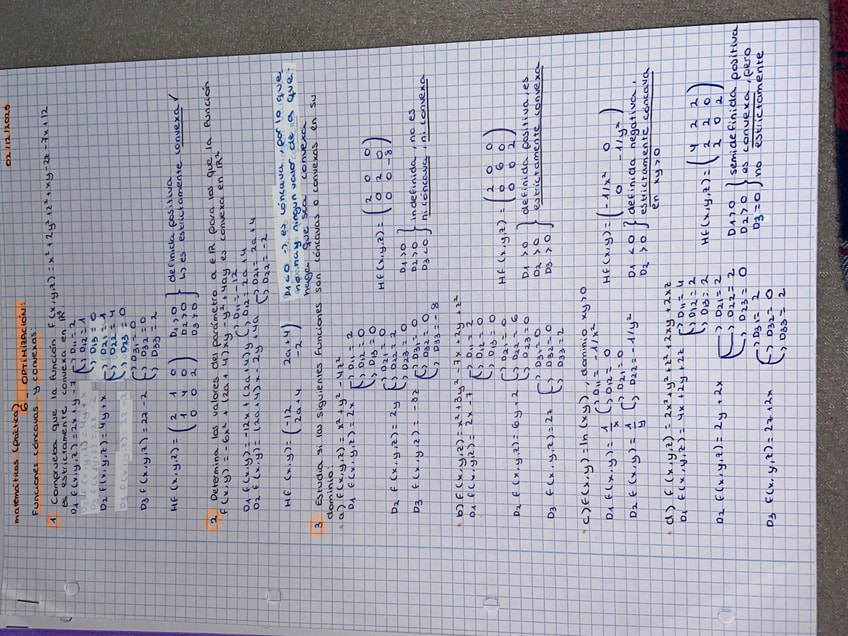 02/12/2025
matemáticas (Práctica)
6. OPTIMIZACIÓN:
Funciones cóncavas y convexas
1 Comprueba que la función f(x,y,z) = x² + 2y² + z² + xy - 2z - 7x + 12
es estrictamente convexa en ℝ³
D1 f(x,y,z) = 2x + y - 7 → D11 = 2
→ D12 = 1
→ D13 = 0
D2 f(x,y,z) = 4y + x → D21 = 1
→ D22 = 4
→ D23 = 0
D3 f(x,y,z) = 2z - 2 → D31 = 0
→ D32 = 0
→ D33 = 2
Hf(x,y,z) = (2 1 0
1 4 0
0 0 2)
D1 > 0
D2 > 0
D3 > 0 } definida positiva
↳ es estrictamente convexa ✓
2 Determina los valores del parámetro a ∈ ℝ para los que la función
f(x,y) = -6x² + (2a+4)xy - y² + 4ay es convexa en ℝ²
D1 f(x,y) = -12x + (2a+4)y → D11 = -12
→ D12 = 2a+4
D2 f(x,y) = (2a+4)x - 2y + 4a → D21 = 2a+4
→ D22 = -2
Hf(x,y) = (-12 2a+4
2a+4 -2)
D1 < 0 → es cóncava, por lo que
no hay ningún valor de a que
haga que sea convexa
3 Estudia si las siguientes funciones son cóncavas o convexas en su
dominio.
a) f(x,y,z) = x² + y² - 4z²
D1 f(x,y,z) = 2x → D11 = 2
→ D12 = 0
→ D13 = 0
D2 f(x,y,z) = 2y → D21 = 0
→ D22 = 2
→ D23 = 0
D3 f(x,y,z) = -8z → D31 = 0
→ D32 = 0
→ D33 = -8
Hf(x,y,z) = (2 0 0
0 2 0
0 0 -8)
D1 > 0
D2 > 0
D3 < 0 } indefinida, no es
ni cóncava, ni convexa
b) f(x,y,z) = x² + 3y² - 7x + 2y + z²
D1 f(x,y,z) = 2x - 7 → D11 = 2
→ D12 = 0
→ D13 = 0
D2 f(x,y,z) = 6y + 2 → D21 = 0
→ D22 = 6
→ D23 = 0
D3 f(x,y,z) = 2z → D31 = 0
→ D32 = 0
→ D33 = 2
Hf(x,y,z) = (2 0 0
0 6 0
0 0 2)
D1 > 0
D2 > 0
D3 > 0 } definida positiva, es
estrictamente convexa
c) f(x,y) = ln(xy), dominio xy > 0
D1 f(x,y) = 1/x → D11 = -1/x²
→ D12 = 0
D2 f(x,y) = 1/y → D21 = 0
→ D22 = -1/y²
Hf(x,y) = (-1/x² 0
0 -1/y²)
D1 < 0
D2 > 0 } definida negativa,
estrictamente cóncava
en xy > 0
d) f(x,y,z) = 2x² + y² + z² + 2xy + 2xz
D1 f(x,y,z) = 4x + 2y + 2z → D11 = 4
→ D12 = 2
→ D13 = 2
D2 f(x,y,z) = 2y + 2x → D21 = 2
→ D22 = 2
→ D23 = 0
D3 f(x,y,z) = 2z + 2x → D31 = 2
→ D32 = 0
→ D33 = 2
Hf(x,y,z) = (4 2 2
2 2 0
2 0 2)
D1 > 0
D2 > 0
D3 = 0 } semidefinida positiva
es convexa, pero
no estrictamente